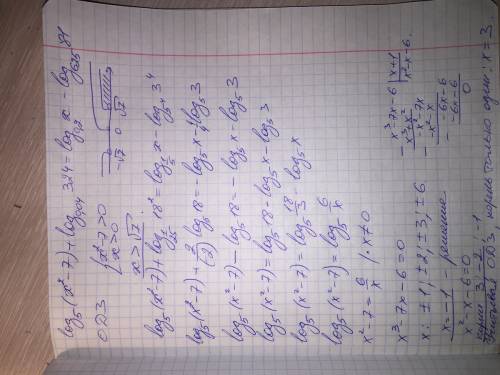 log₅(x²-7) + log₀,₀₄ 324 = log₀,₂ x - log₆₂₅ 81
ОДЗ { x²-7>0
x>0
x>√7
-√7 0 √7
log₅(x²-7) + log_{1/25} 18² = log_{1/5} x - log_{5⁴} 3⁴
log₅(x²-7) + 2/(-2) log₅ 18 = -log₅ x - 4/4 log₅ 3
log₅(x²-7) - log₅ 18 = -log₅ x - log₅ 3
log₅(x²-7) = log₅ 18 - log₅ x - log₅ 3
log₅(x²-7) = log₅ 18/3 - log₅ x
log₅(x²-7) = log₅ 6/x
x²-7 = 6/x | · x≠0
x³-7x-6=0
x: ±1, ±2, ±3, ±6
x=-1 - решение
x²-x-6=0
корни 3, -2, -1
ОДЗ, корень только один: x=3
x³-7x-6 | x+1
x³+x² | x²-x-6.
-x²-7x
-x²-x
-6x-6
-6x-6
0